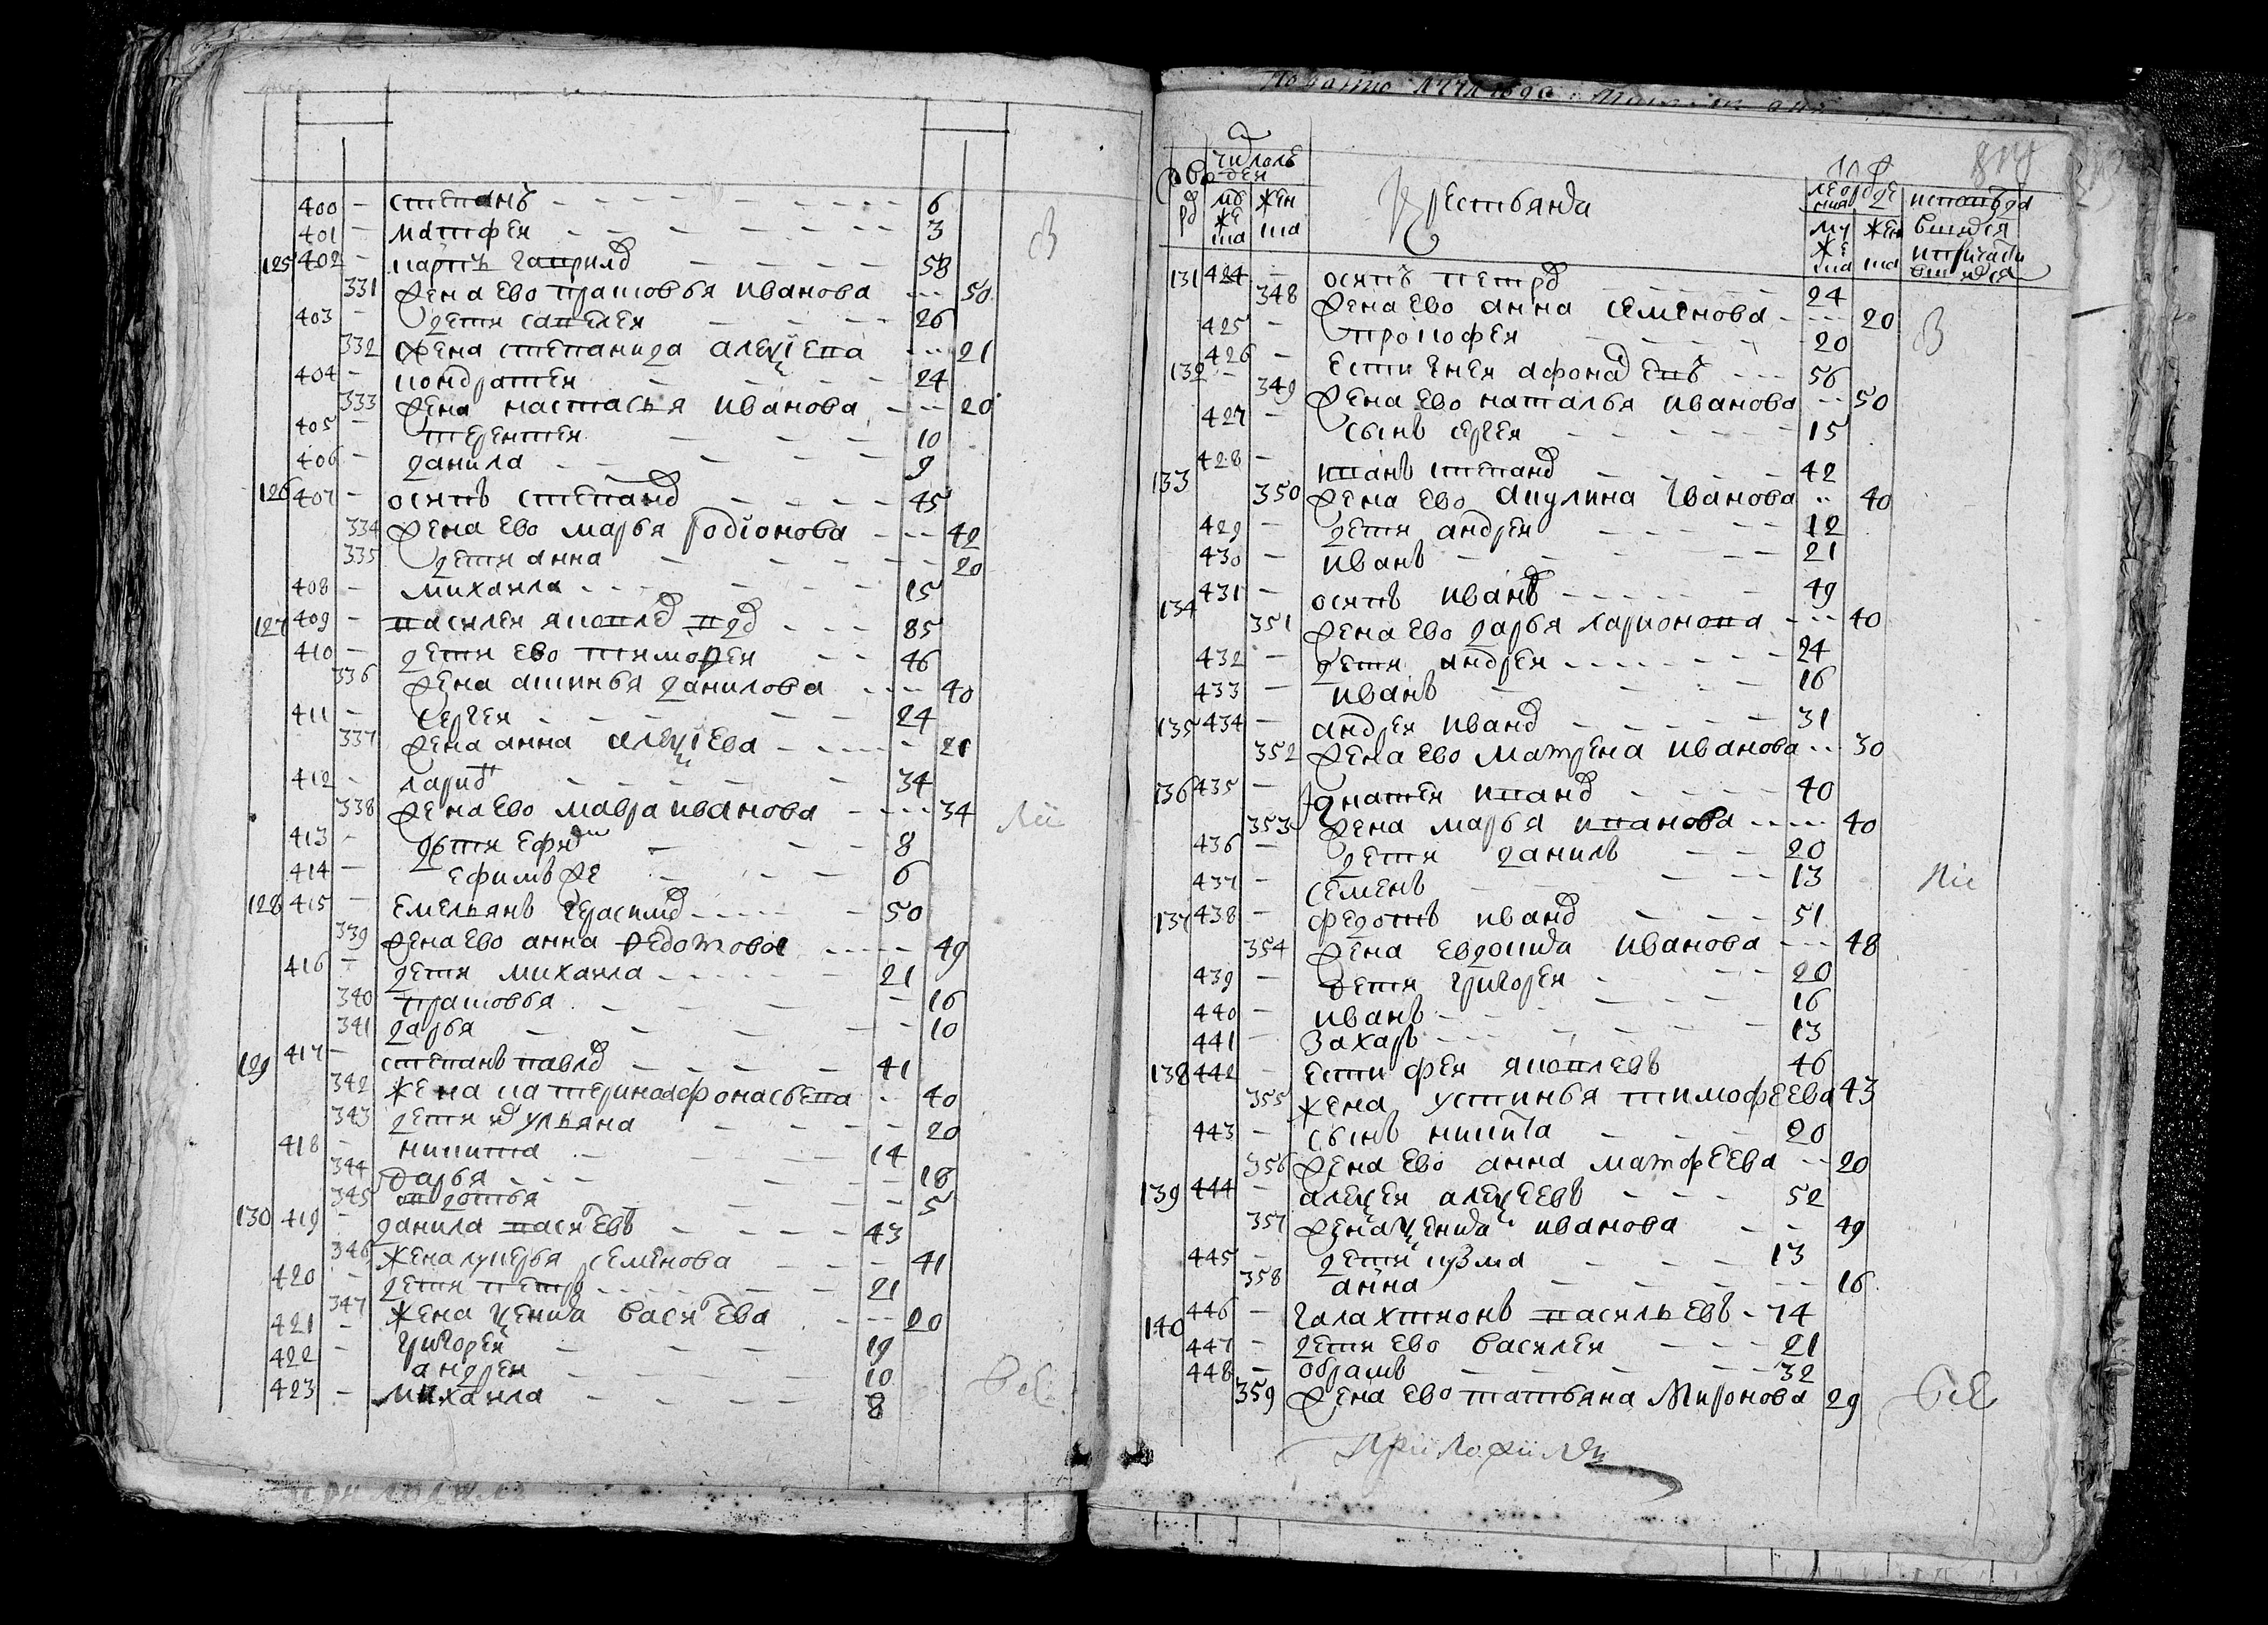 400 — степанъ — 6
401 — матфеи — 3
125 402 — карпъ гаврилов — 58
331 жена ево прасковья иванова — 50
403 — дети савелеи — 26
332 жена степанида алексiева — 21
404 — кондратеи — 24
333 жена настасья иванова — 20
405 — терентеи — 10
406 — данила — 9
126 407 — осипъ степанов — 45
334 жена ево марья родiонова — 42
335 дети анна — 20
408 — михаила — 15
127 409 — василеи яковлев вдов — 85
410 — дети ево тимофеи — 46
336 жена аксинья данилова — 40
411 — сергеи — 24
337 жена анна алексiева — 21
412 — ларион — 34
338 жена ево мавра иванова — 34
413 — дети ефим — 8
414 — ефимъ же — 6
128 415 — емельянъ герасимов — 50
339 жена ево анна федотова — 49
416 — дети михаила — 21
340 прасковья — 16
341 дарья — 10
129 417 — степанъ павлов — 41
342 жена катерина афонасьева — 40
343 дети ульяна — 20
418 — никита — 14
344 дарья — 18
345 авдотья — 5
130 419 — данила васильевъ — 43
346 жена лукерья семенова — 41
420 — дети петръ — 21
347 жена ксения васильева — 20
421 — григореи — 19
422 — андреи — 10
423 — михаила — 8
все
приложилъ
число людеи
двора
мужеска женска
крестьяня
лета от рождения
мужеска женска
исповедавшияся и причащавшияся
131 424 — осипъ петров — 24
348 жена ево анна семенова — 20
425 — прокофеи — 20
132 426 — евтифеи афонасьевъ — 56
349 жена ево наталья иванова — 50
427 — сынъ сергеи — 15
133 428 — иванъ степанов — 42
350 жена ево акулина иванова — 40
429 — дети андреи — 12
430 — иванъ — 21
134 431 — осипъ иванов — 49
351 жена ево дарья ларионова — 40
432 — дети андреи — 24
433 — иванъ — 16
135 434 — андреи иванов — 31
352 жена ево матрена иванова — 30
136 435 — игнатеи иванов — 40
353 жена марья иванова — 40
436 — дети данилъ — 20
437 — семенъ — 13
137 438 — федотъ иванов — 51
354 жена евдокия иванова — 48
439 — дети григореи — 20
440 — иванъ — 16
441 — захаръ — 13
138 442 — евтифеи яковлевъ 46
355 жена устинья тимофеева 43
443 — сынъ никита — 20
356 жена ево анна матфеева — 20
139 444 — алексеи алексеевъ — 52
357 жена ксения иванова — 49
445 — дети кузма — 13
358 анна — 16
140 446 — галахтионъ васильевъ — 74
447 — дети ево василеи — 21
448 — обрамъ — 32
359 жена ево татьяна миронова 29
все
приложилъ